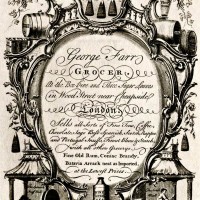 George Farr
GROCER
At the Bee hive and Three Sugar Loaves
in Wood Street near Cheapside
London
Sells all Sorts of Fine Teas, Coffee,
Chocolate, Sugar
and Portugal Snuffs, Finest
with all other
Fine Old Rum, Coniac Brandy,
Batavia Arrack neat as Imported,
at the Lowest Prices.